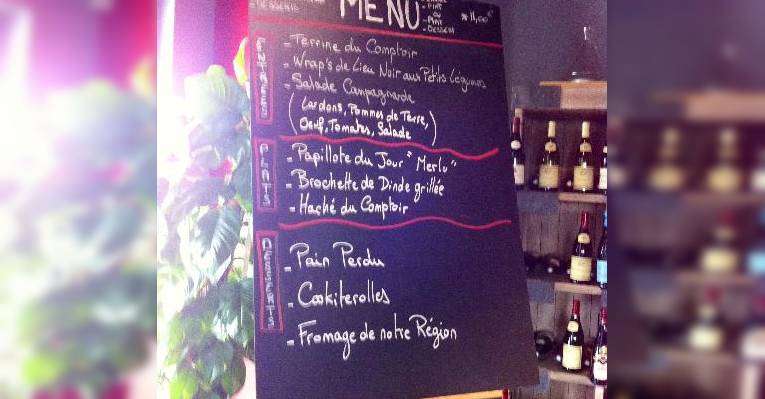 MENU
- PLAT
ou
- PLAT
- DESSERT
11,00€
ENTRÉES
- Terrine du Comptoir
- Wrap's de Lieu Noir aux Petits Légumes
- Salade Campagnarde
(Lardons, Pommes de Terre,
Oeuf, Tomates, Salade)
PLATS
- Papillote du Jour "Merlu"
- Brochette de Dinde grillée
- Haché du Comptoir
DESSERTS
- Pain Perdu
- Cookiterolles
- Fromage de notre Région